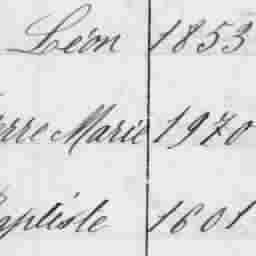 Léon 1853
erre Marie 1970
aptiste 1601